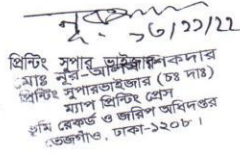 নূর
১৩/১১/২২
প্রিন্টিং সুপার ভাইজার
মোঃ নূর-আলম শিকদার
প্রিন্টিং সুপারভাইজার (চঃ দাঃ)
ম্যাপ প্রিন্টিং প্রেস
ভূমি রেকর্ড ও জরিপ অধিদপ্তর
তেজগাঁও, ঢাকা-১২০৮।